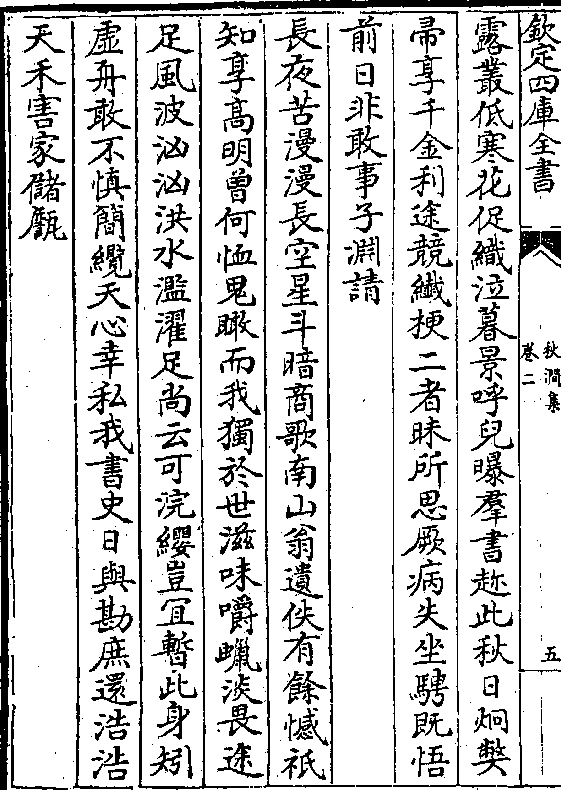 欽定四庫全書
秋澗集
卷二
五
露叢低寒花促織泣暮景呼兒曝羣書趂此秋日炯獘
帚享千金利途競纎挭二者昧所思厥病失坐騁既悟
前日非敢事子淵請
長夜苦漫漫長空星斗暗商歌南山翁遺佚有餘憾祇
知享高明曾何恤鬼瞰而我獨於世滋味嚼蠟淡畏途
足風波汹汹洪水濫濯足尚云可浣纓豈冝暫此身矧
虚舟敢不慎簡纜天心幸私我書史日與勘庶還浩浩
天禾害家儲甔